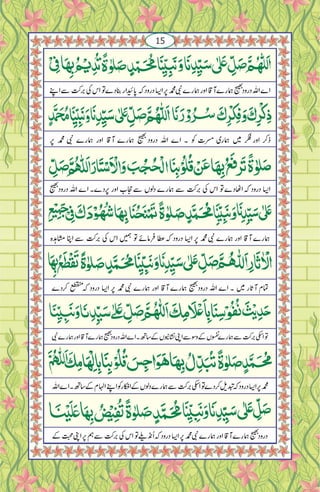 15
اَللّٰهُمَّ صَلِّ عَلٰى سَيِّدِنَا وَنَبِيِّنَا مُحَمَّدٍ صَلٰوةً تُدِيْمُ بِهَا فِيْ
اے اللہ درود بھیج ہمارے آقا اور ہمارے نبی محمد پر ایسا درود کہ پائیدار بنا دے تو اس کی برکت سے اپنے
ذِكْرِكَ وَفِكْرِكَ سُرُوْرَنَا اَللّٰهُمَّ صَلِّ عَلٰى سَيِّدِنَا وَنَبِيِّنَا مُحَمَّدٍ
ذکر اور فکر میں ہماری مسرت کو ۔ اے اللہ درود بھیج ہمارے آقا اور ہمارے نبی محمد پر
صَلٰوةً تَرْفَعُ بِهَا عَنْ قُلُوْبِنَا الْحُجُبَ وَالْاَسْتَارَ اَللّٰهُمَّ صَلِّ
ایسا درود کہ اٹھا دے تو اس کی برکت سے ہمارے دلوں سے حجاب اور پردے۔ اے اللہ درود بھیج
عَلٰى سَيِّدِنَا وَنَبِيِّنَا مُحَمَّدٍ صَلٰوةً تَمْنَحُنَا بِهَا شُهُوْدَكَ فِيْ جَمِيْعِ
ہمارے آقا اور ہمارے نبی محمد پر ایسا درود کہ عطا فرمائے تو ہمیں اس کی برکت سے اپنا مشاہدہ
الْاٰثَارِ اَللّٰهُمَّ صَلِّ عَلٰى سَيِّدِنَا وَنَبِيِّنَا مُحَمَّدٍ صَلٰوةً تَقْطَعُ بِهَا
تمام آثار میں ۔ اے اللہ درود بھیج ہمارے آقا اور ہمارے نبی محمد پر ایسا درود کہ منقطع کردے
حَدِيْثَ نُفُوْسِنَا بِاِعْلَامِكَ اَللّٰهُمَّ صَلِّ عَلٰى سَيِّدِنَا وَنَبِيِّنَا
تو اسکی برکت سے ہمارے نفسوں کے وسوسے اپنی نشانیوں کے ساتھ۔ اے اللہ درود بھیج ہمارے آقا اور ہمارے نبی
مُحَمَّدٍ صَلٰوةً تُبَدِّلُ بِهَا هَوَاجِسَ قُلُوْبِنَا بِاِلْهَامِكَ اَللّٰهُمَّ
محمد پر ایسا درود کہ تبدیل کردے تو اسکی برکت سے ہمارے دلوں کے افکار کو اپنے الہام کے ساتھ۔ اے اللہ
صَلِّ عَلٰى سَيِّدِنَا وَنَبِيِّنَا مُحَمَّدٍ صَلٰوةً تُفِيْضُ بِهَا عَلَيْنَا
درود بھیج ہمارے آقا اور ہمارے نبی محمد پر ایسا درود کہ انڈیلے تو اس کی برکت سے ہم پر اپنی محبت کے